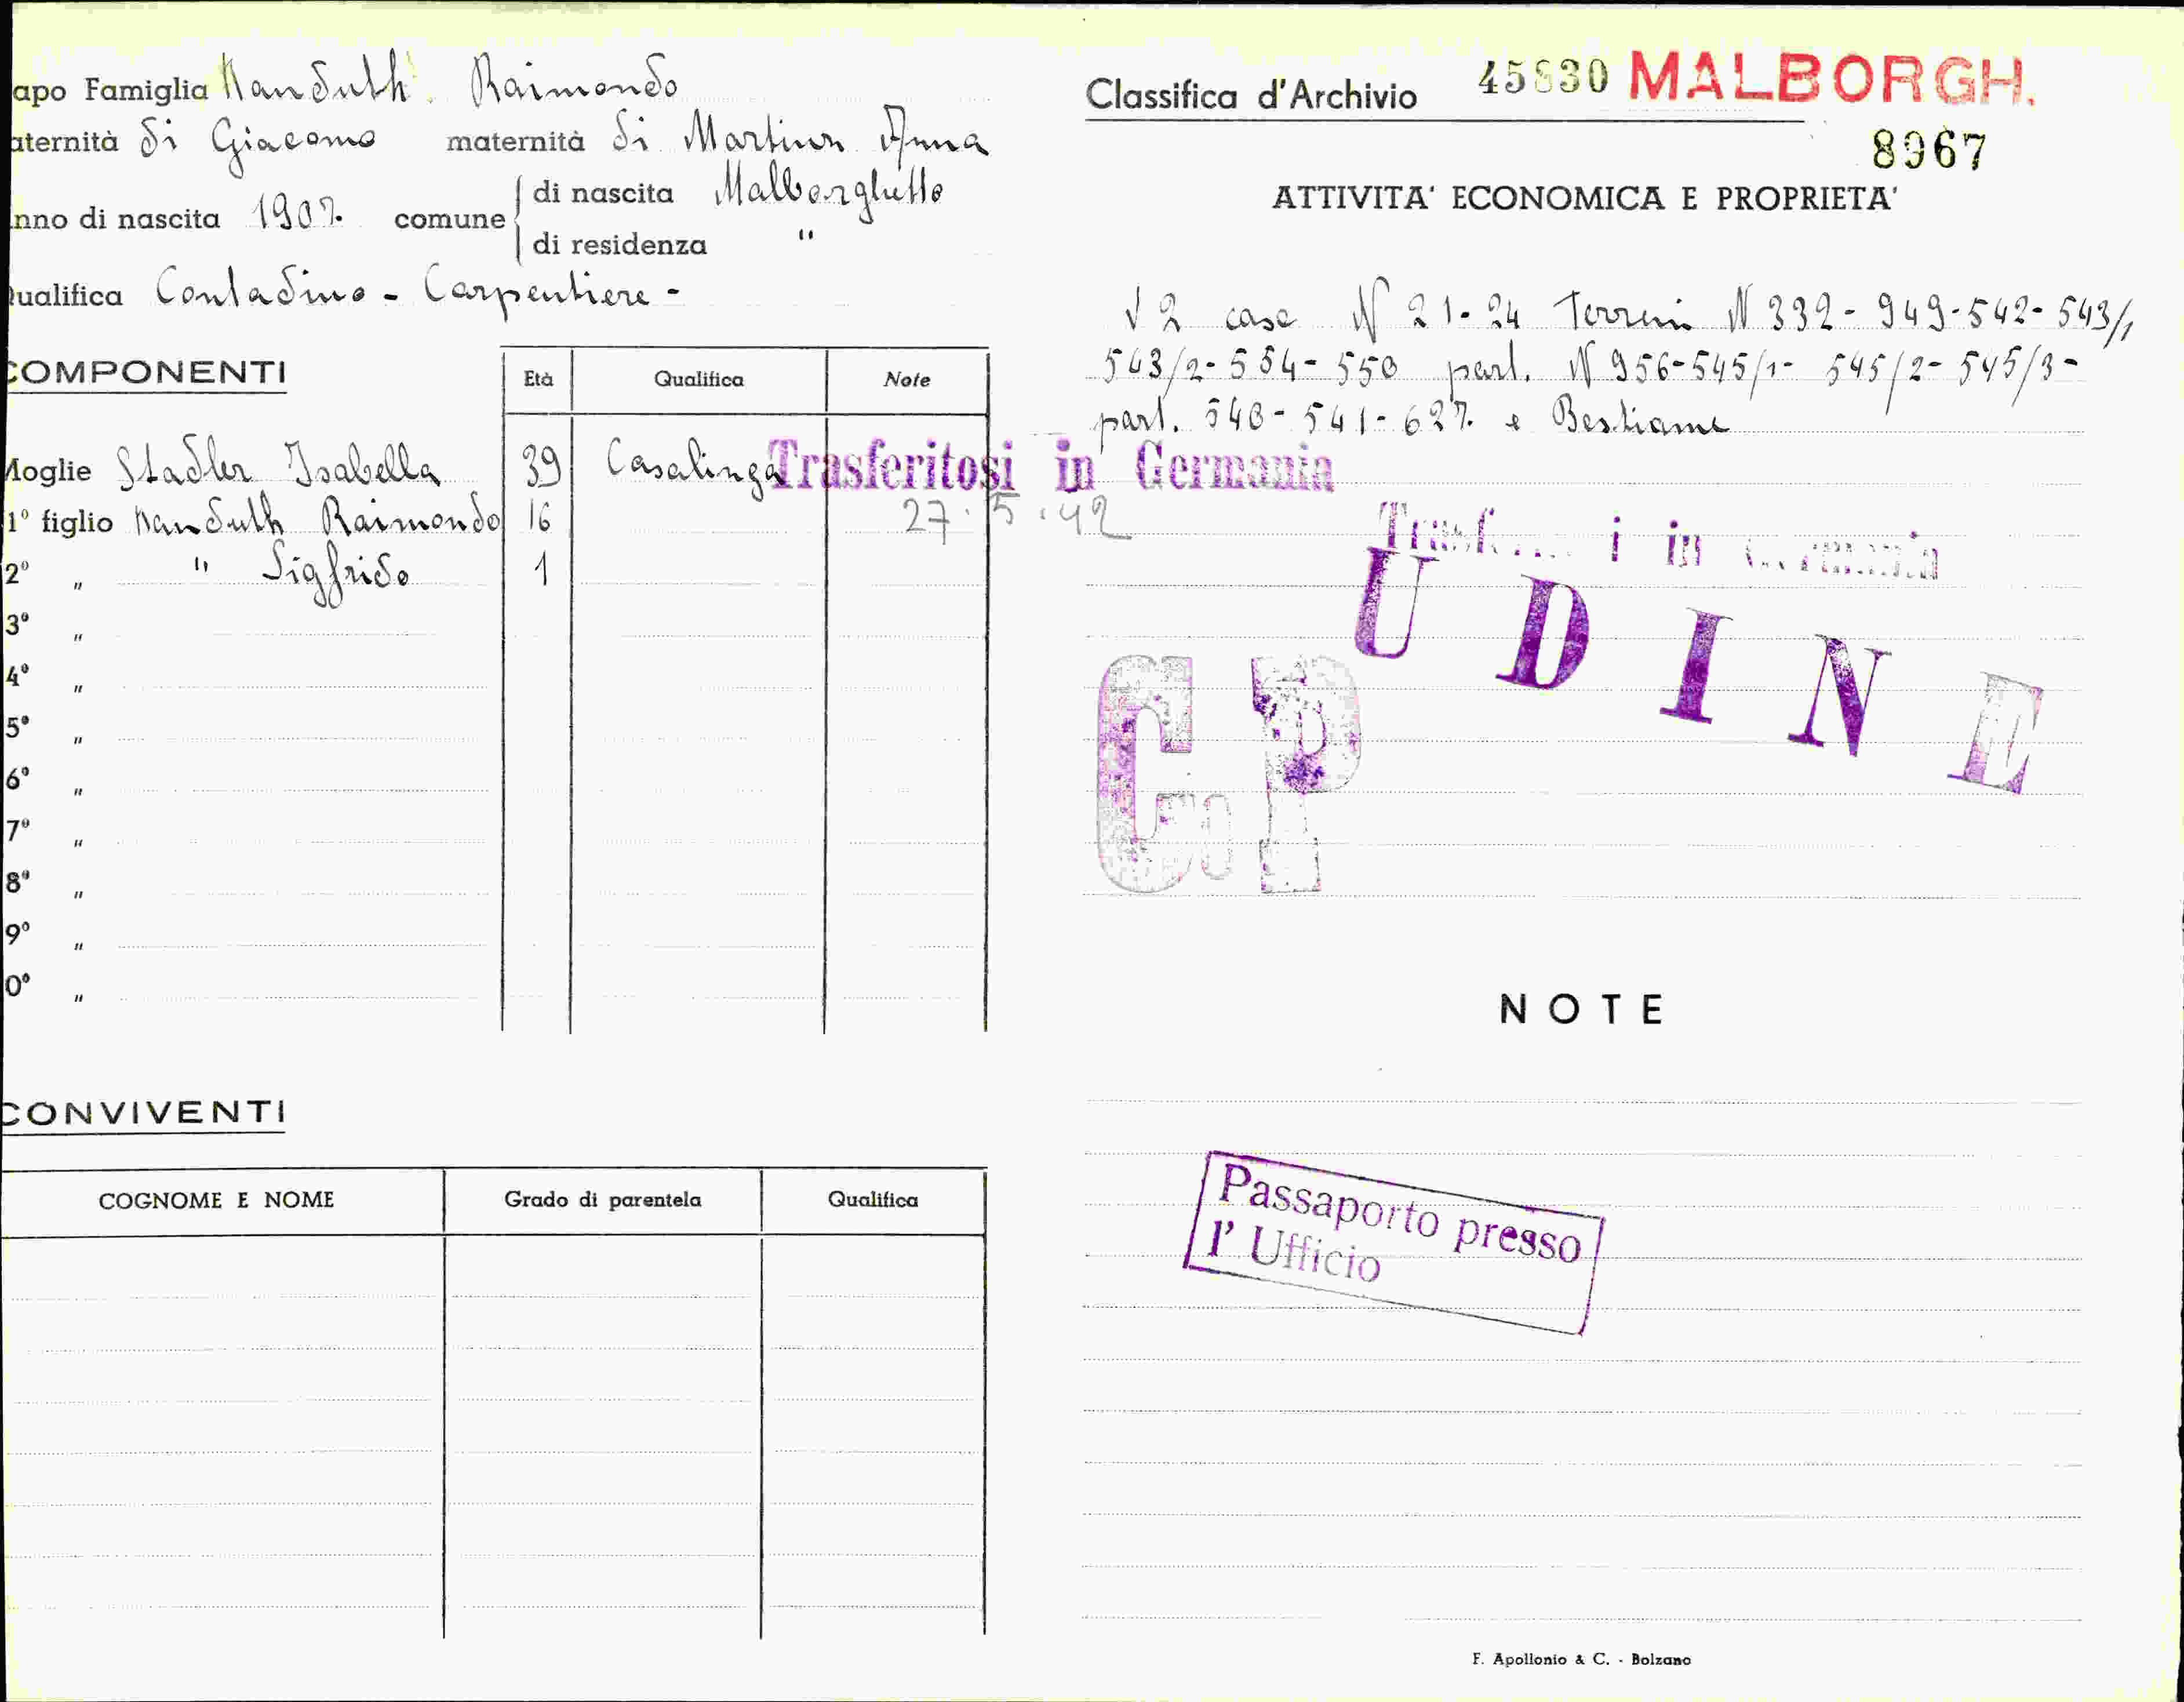 apo Famiglia Kanduth Raimondo
aternità di Giacomo maternità di Martina Anna
nno di nascita 1907. comune di nascita Malborghetto
di residenza "
ualifica Contadino - Carpentiere -
COMPONENTI Età Qualifica Note
Moglie Stadler Isabella 39 Casalinga
1° figlio Kanduth Raimondo 16
2° " " Sigfrido 1
3° "
4° "
5° "
6° "
7° "
8° "
9° "
0° "
Trasferitosi in Germania
27.5.42
CONVIVENTI
COGNOME E NOME Grado di parentela Qualifica
Classifica d'Archivio 45830 MALBORGH.
8967
ATTIVITA' ECONOMICA E PROPRIETA'
√ 2 case N 21-24 Terreni N 332- 949-542- 543/1
543/2- 554- 550 part. N 956-545/1- 545/2- 545/3-
part. 540- 541- 627. e Bestiame
i in Germania
UDINE
C.P
NOTE
Passaporto presso
l' Ufficio
F. Apollonio & C. - Bolzano